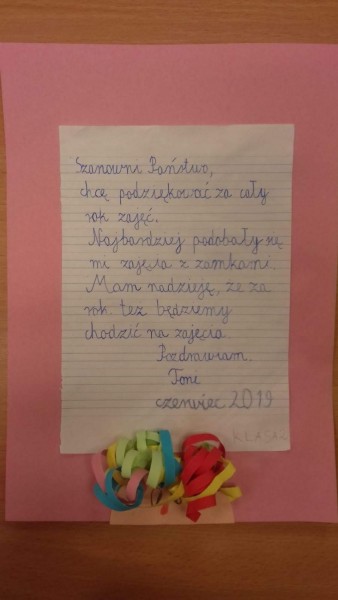 Szanowni Państwo,
chcę podziękować za cały
rok zajęć.
Najbardziej podobały się
mi zajęcia z zamkami.
Mam nadzieję, że za
rok też będziemy
chodzić na zajęcia.
Pozdrawiam.
Toni
czerwiec 2019